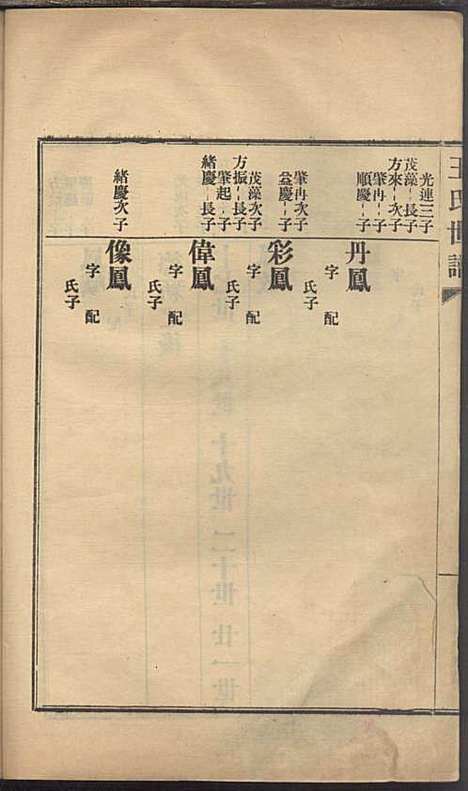 王氏世譜
光連三子
茂藻-長子
方來-次子
肇再-子
順慶-子
丹鳳
字 配
氏子
肇再次子
益慶-子
彩鳳
字 配
氏子
茂藻次子
方振-長子
肇起-子
緒慶-長子
偉鳳
字 配
氏子
緒慶次子
像鳳
字 配
氏子